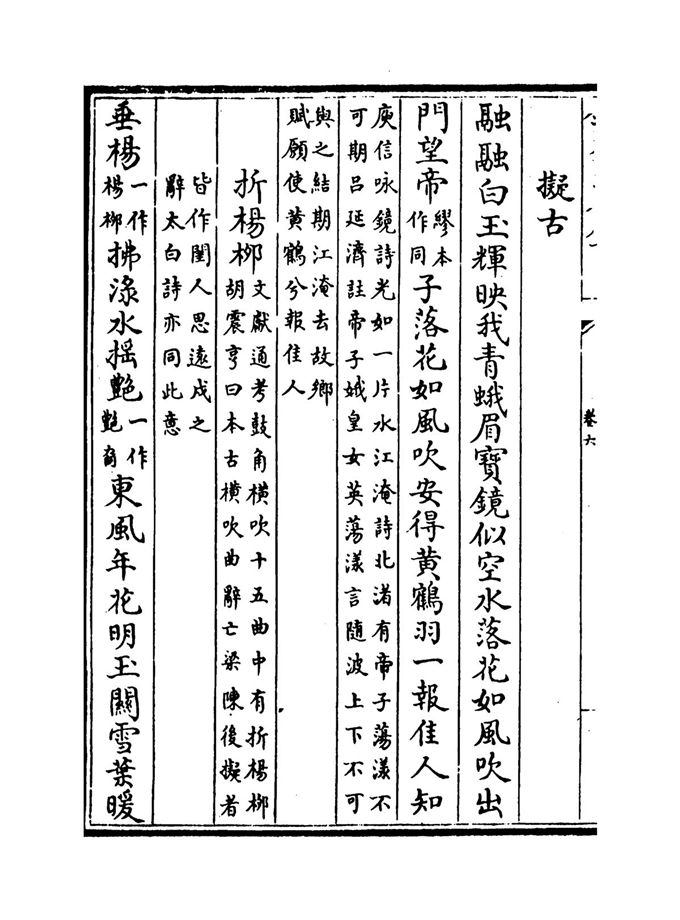 卷六
擬古
融融白玉輝映我青蛾眉寶鏡似空水落花如風吹出
門望帝繆本作同子落花如風吹安得黃鶴羽一報佳人知
庾信咏鏡詩光如一片水江淹詩北渚有帝子蕩漾不
可期呂延濟註帝子娥皇女英蕩漾言隨波上下不可
與之結期江淹去故鄉
賦願使黃鶴兮報佳人
折楊栁文獻通考鼓角橫吹十五曲中有折楊栁
胡震亨曰本古橫吹曲辭亡梁陳後擬者
皆作閨人思遠戍之
辭太白詩亦同此意
垂楊一作楊栁拂淥水摇艶一作艶裔東風年花明玉關雪葉暖